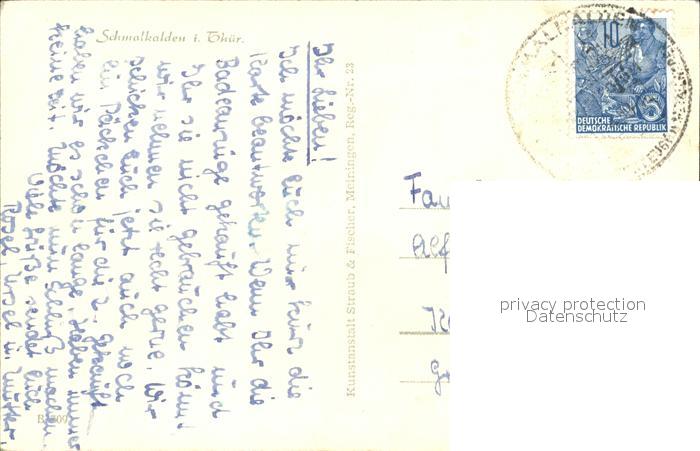 Schmalkalden i. Thür.
Ihr Lieben!
Ich möchte Euch nur kurz die
Karte beantworten. Wenn Ihr die
Badeanzüge gekauft habt und
Ihr sie nicht gebrauchen könnt
wir nehmen sie recht gerne. Wir
schicken Euch jetzt auch noch
ein Päckchen für die 2. gekauft
haben wir es schon lange. Haben immer
keine Zeit. Möchte nun Schluß machen.
Viele Grüße sendet Euch
Rosel, Ursel u. Mutter.
B 709
Kunstanstalt Straub & Fischer, Meiningen, Reg.-Nr. 23
SCHMALKALDEN
10
5
DEUTSCHE
DEMOKRATISCHE REPUBLIK
Fam
Alf
privacy protection
Datenschutz